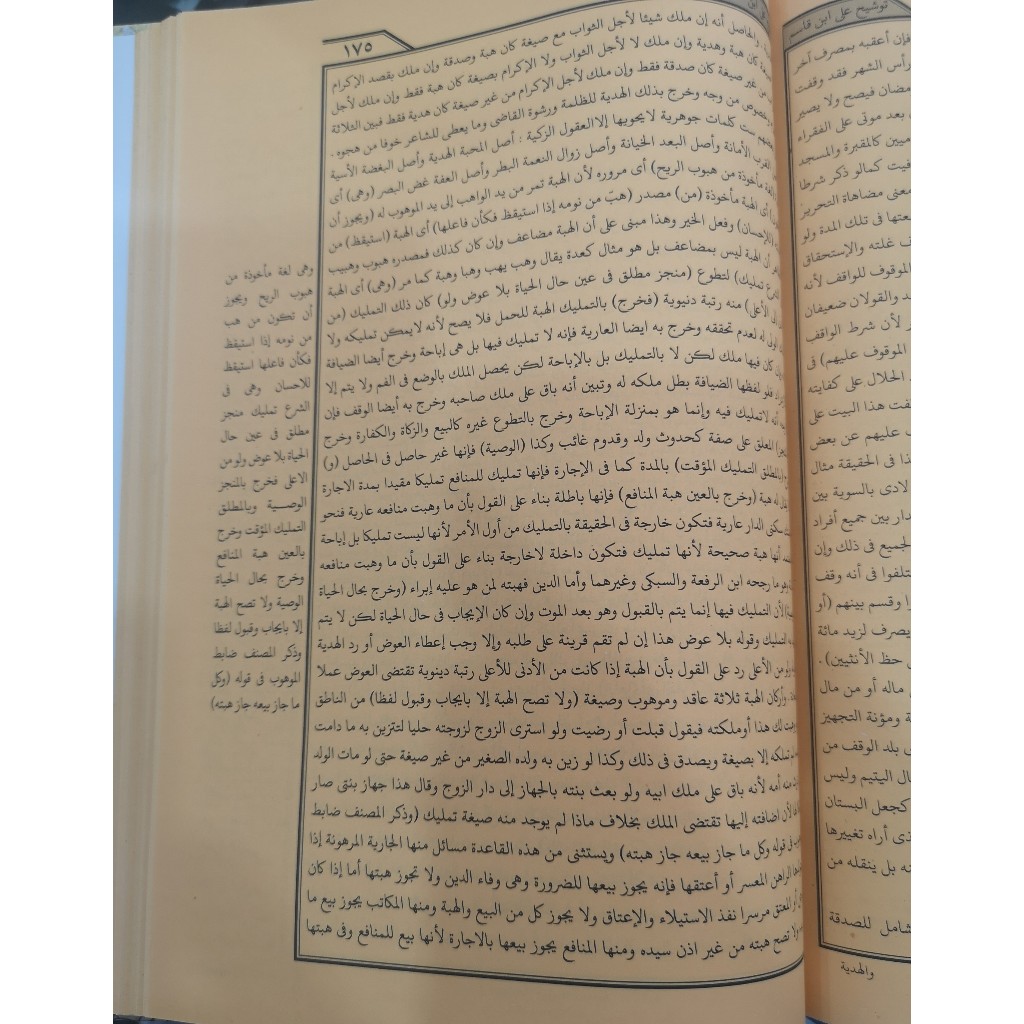 ١٧٥
والحاصل أنه إن ملك شيئا لأجل الثواب مع صيغة كان هبة وصدقة وإن ملك بقصد الإكرام
كان هبة وهدية وإن ملك لا لأجل الثواب ولا الإكرام بصيغة كان هبة فقط وإن ملك لأجل
من غير صيغة كان صدقة فقط وإن ملك لأجل الإكرام من غير صيغة كان هدية فقط فبين الثلاثة
وخصوص من وجه وخرج بذلك الهدية للظلمة ورشوة القاضى وما يعطى للشاعر خوفا من هجوه .
ست كلمات جوهرية لايحويها إلاالعقول الزكية : أصل المحبة الهدية وأصل البغضة الأسية
القرب الأمانة وأصل البعد الخيانة وأصل زوال النعمة البطر وأصل العفة غض البصر (وهى) أى
مأخوذة من هبوب الريح) أى مروره لأن الهبة تمر من يد الواهب إلى يد الموهوب له (ويجوز أن
أى الهبة مأخوذة (من) مصدر (هبّ من نومه إذا استيقظ فكأن فاعلها) أى الهبة (استيقظ) من
(للإحسان) وفعل الخير وهذا مبنى على أن الهبة مضاعف وإن كان كذلك فمصدره هبوب وهبيب
أن الهبة ليس بمضاعف بل هو مثال كعدة يقال وهب يهب وهبا وهبة كما مر (وهى) أى الهبة
تمليك) لتطوع (منجز مطلق فى عين حال الحياة بلا عوض ولو) كان ذلك التمليك (من
الأعلى) منه رتبة دنيوية (فخرج) بالتمليك الهبة للحمل فلا يصح لأنه لايمكن تمليكه ولا
له لعدم تحققه وخرج به ايضا العارية فإنه لا تمليك فيها بل هى إباحة وخرج أيضا الضيافة
كان فيها ملك لكن لا بالتمليك بل بالإباحة لكن يحصل الملك بالوضع فى الفم ولا يتم إلا
فلو لفظها الضيافة بطل ملكه له وتبين أنه باق على ملك صاحبه وخرج به أيضا الوقف فإن
أنه لاتمليك فيه وإنما هو بمنزلة الإباحة وخرج بالتطوع غيره كالبيع والزكاة والكفارة وخرج
المعلق على صفة كحدوث ولد وقدوم غائب وكذا (الوصية) فإنها غير حاصل فى الحاصل (و)
(بالمطلق التمليك المؤقت) بالمدة كما فى الإجارة فإنها تمليك للمنافع تمليكا مقيدا بمدة الاجارة
له هبة (وخرج بالعين هبة المنافع) فإنها باطلة بناء على القول بأن ما وهبت منافعه عارية فنحو
سكنى الدار عارية فتكون خارجة فى الحقيقة بالتمليك من أول الأمر لأنها ليست تمليكا بل إباحة
أنها هبة صحيحة لأنها تمليك فتكون داخلة لاخارجة بناء على القول بأن ما وهبت منافعه
وهو ما رجحه ابن الرفعة والسبكى وغيرهما وأما الدين فهبته لمن هو عليه إبراء (وخرج بحال الحياة
لأن التمليك فيها إنما يتم بالقبول وهو بعد الموت وإن كان الإيجاب فى حال الحياة لكن لا يتم
التمليك وقوله بلا عوض هذا إن لم تقم قرينة على طلبه وإلا وجب إعطاء العوض أو رد الهدية
ولو من الأعلى رد على القول بأن الهبة إذا كانت من الأدنى للأعلى رتبة دينوية تقتضى العوض عملا
وأركان الهبة ثلاثة عاقد وموهوب وصيغة (ولا تصح الهبة إلا بايجاب وقبول لفظا) من الناطق
لك هذا أوملكته فيقول قبلت أو رضيت ولو استرى الزوج لزوجته حليا لتتزين به ما دامت
تملكه إلا بصيغة ويصدق فى ذلك وكذا لو زين به ولده الصغير من غير صيغة حتى لو مات الولد
منه أمه لأنه باق على ملك ابيه ولو بعث بنته بالجهاز إلى دار الزوج وقال هذا جهاز بنتى صار
لأن اضافته إليها تقتضى الملك بخلاف ماذا لم يوجد منه صيغة تمليك (وذكر المصنف ضابط
فى قوله وكل ما جاز بيعه جاز هبته) ويستثنى من هذه القاعدة مسائل منها الجارية المرهونة إذا
الراهن المعسر أو أعتقها فإنه يجوز بيعها للضرورة وهى وفاء الدين ولا تجوز هبتها أما إذا كان
أو المعتق مرسرا نفذ الاستيلاء والإعتاق ولا يجوز كل من البيع والهبة ومنها المكاتب يجوز بيع ما
ولا تصح هبته من غير اذن سيده ومنها المنافع يجوز بيعها بالاجارة لأنها بيع للمنافع وفى هبتها
وهى لغة مأخوذة من
هبوب الريح ويجوز
أن تكون من هب
من نومه إذا استيقظ
فكأن فاعلها استيقظ
للاحسان وهى فى
الشرع تمليك منجز
مطلق فى عين حال
الحياة بلا عوض ولو من
الاعلى فخرج بالمنجز
الوصية وبالمطلق
التمليك المؤقت وخرج
بالعين هبة المنافع
وخرج بحال الحياة
الوصية ولا تصح الهبة
إلا بايجاب وقبول لفظا
وذكر المصنف ضابط
الموهوب فى قوله (وكل
ما جاز بيعه جاز هبته)
توشيح على ابن قاسم
فإن أعقبه بمصرف آخر
رأس الشهر فقد وقفت
رمضان فيصح ولا يصير
بعد موتى على الفقراء
كالمقبرة والمسجد
كمالو ذكر شرطا
معنى مضاهاة التحرير
فى تلك المدة ولو
غلته والإستحقاق
الموقوف للواقف لأنه
والقولان ضعيفان
لأن شرط الواقف
الموقوف عليهم) فى
الحلال على كفايته
هذا البيت على
عليهم عن بعض
فى الحقيقة مثال
لادى بالسوية بين
بين جميع أفراد
الجميع فى ذلك وإن
فى أنه وقف
وقسم بينهم (أو
يصرف لزيد مائة
حظ الأنثيين).
ماله أو من مال
ومؤنة التجهيز
بلد الوقف من
اليتيم وليس
كجعل البستان
أراه تغييرها
بل ينقله من
للصدقة
والهدية